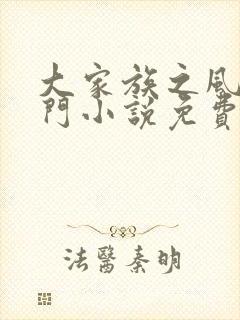 大家族之風
門小說免費
法醫秦明